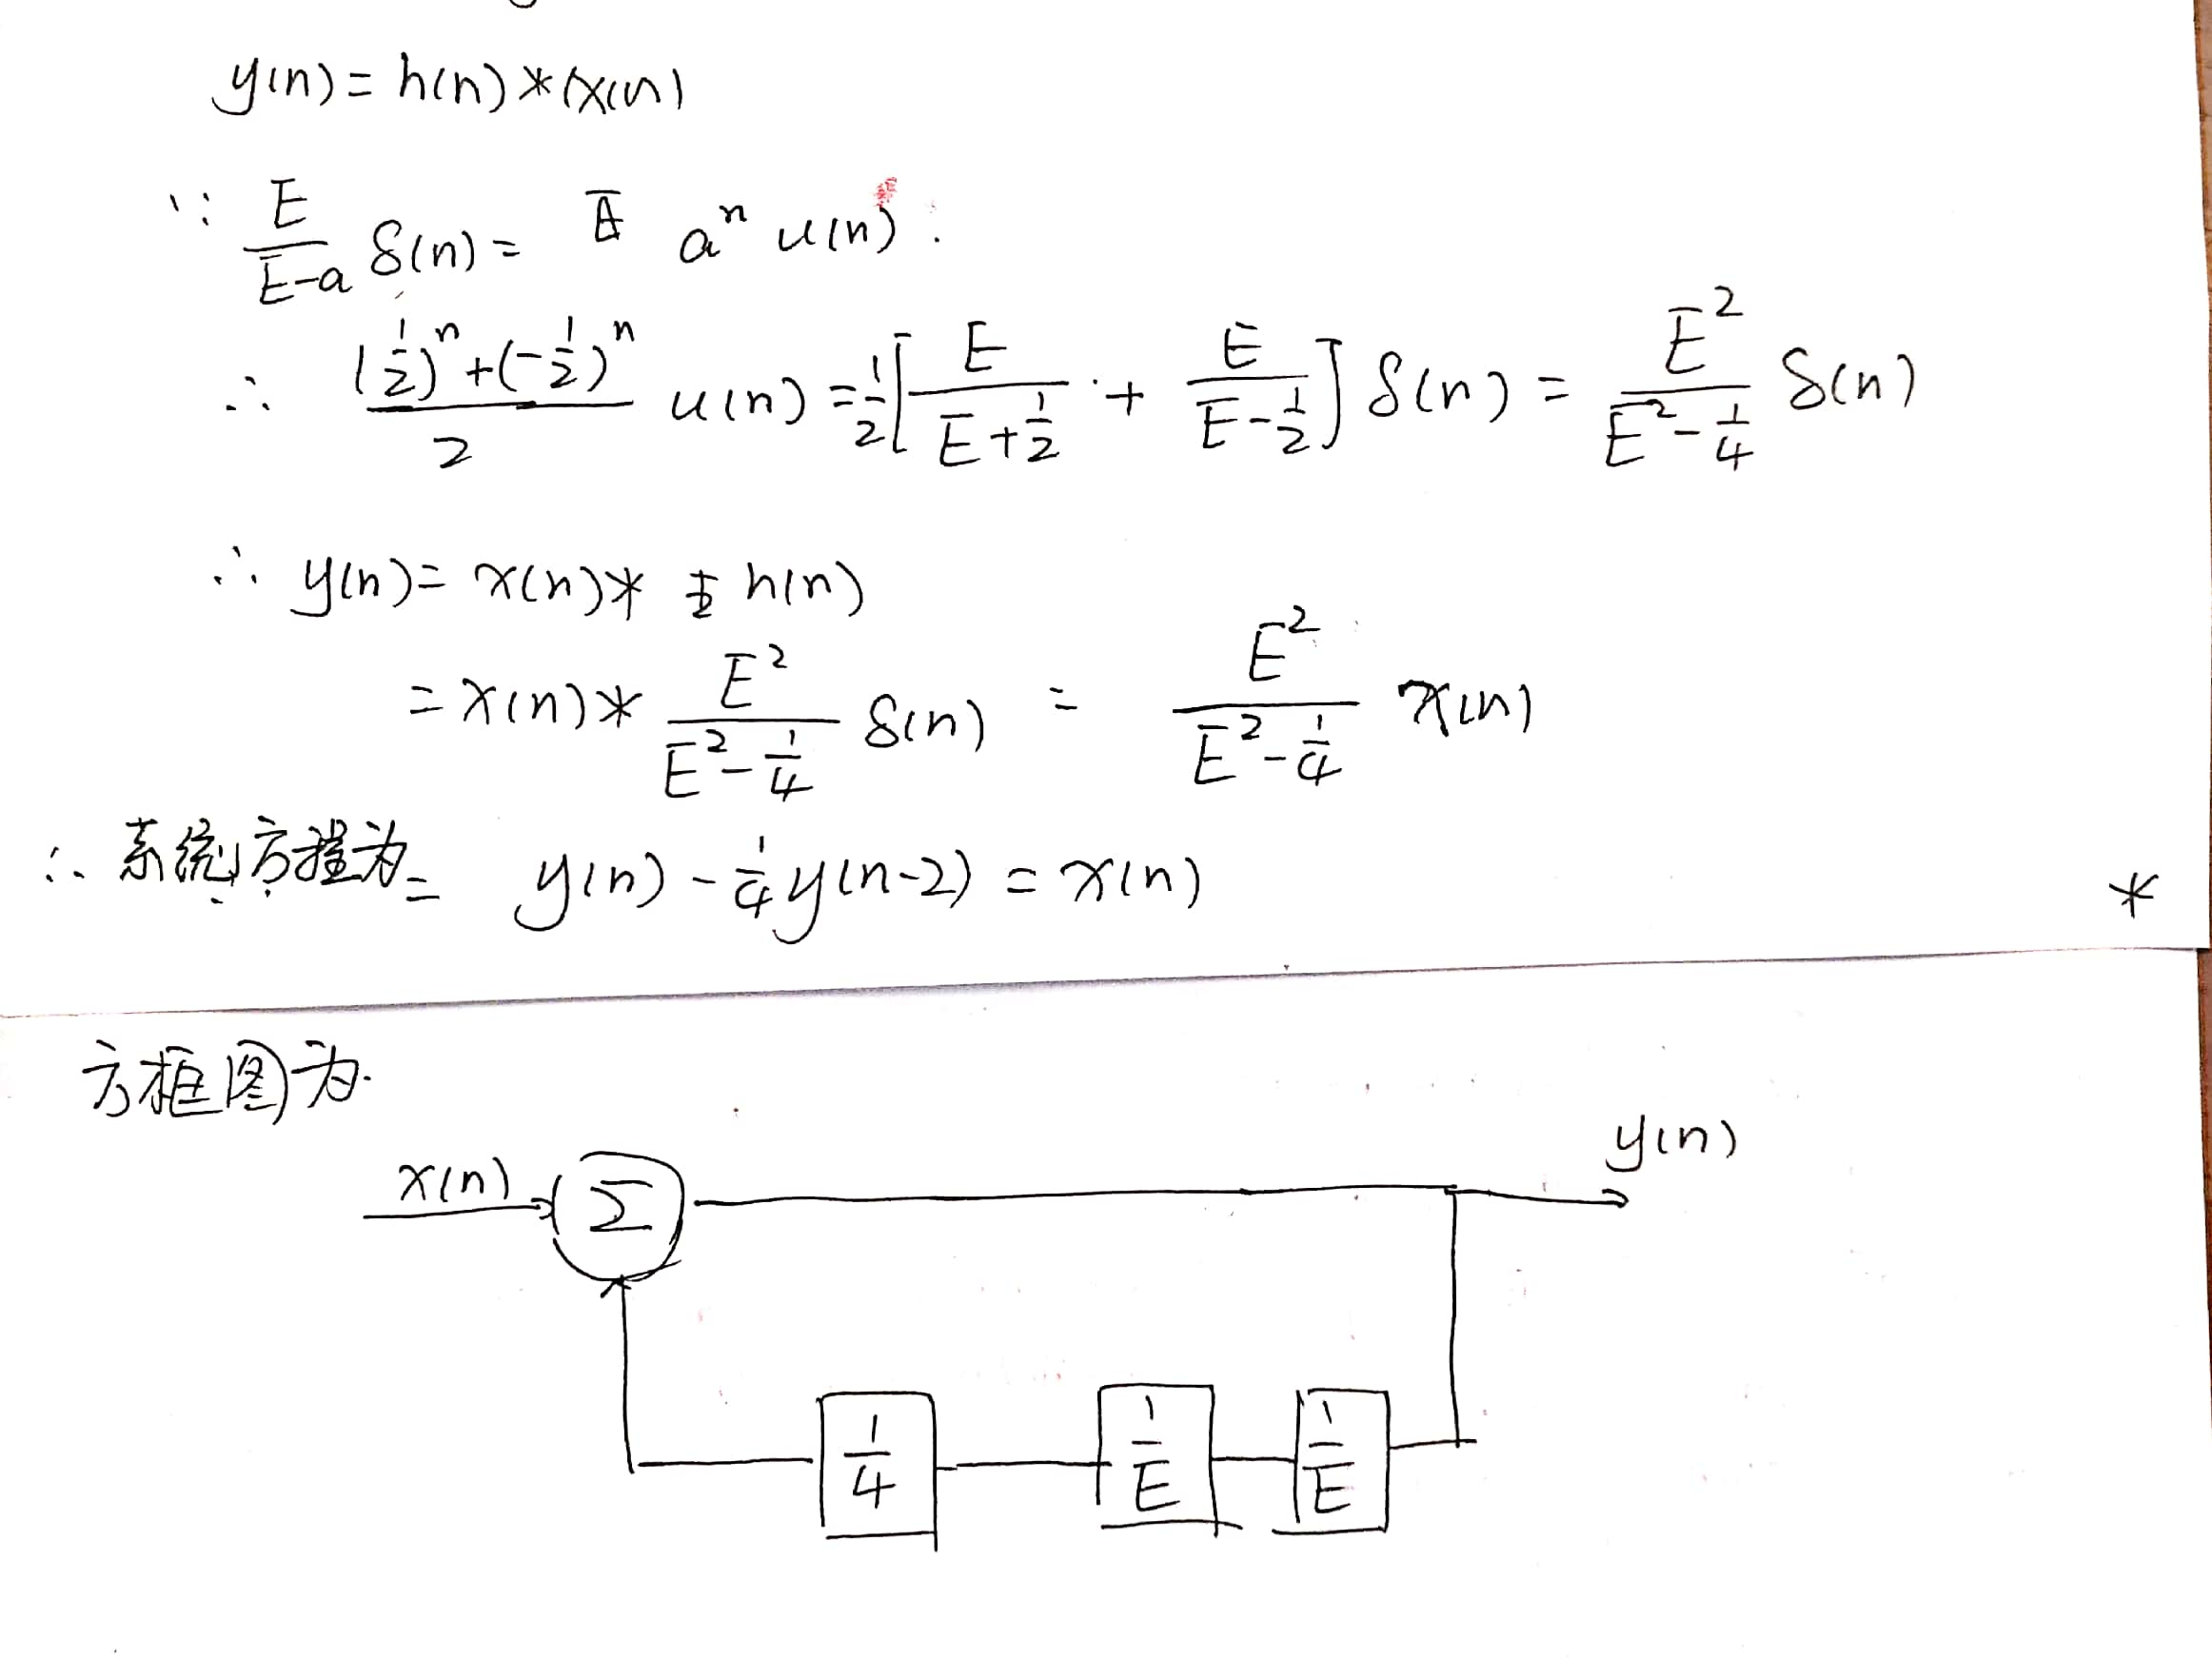 y(n) = h(n) * x(n)
∵ E/(E-a) δ(n) = a^n u(n).
∴ ((1/2)^n + (-1/2)^n)/2 u(n) = 1/2 [E/(E+1/2) + E/(E-1/2)] δ(n) = E^2/(E^2 - 1/4) δ(n)
∴ y(n) = x(n) * h(n)
= x(n) * E^2/(E^2 - 1/4) δ(n) = E^2/(E^2 - 1/4) x(n)
∴ 系统方程为 = y(n) - 1/4 y(n-2) = x(n) *
方框图为.
x(n) Σ y(n)
1/4 1/E 1/E